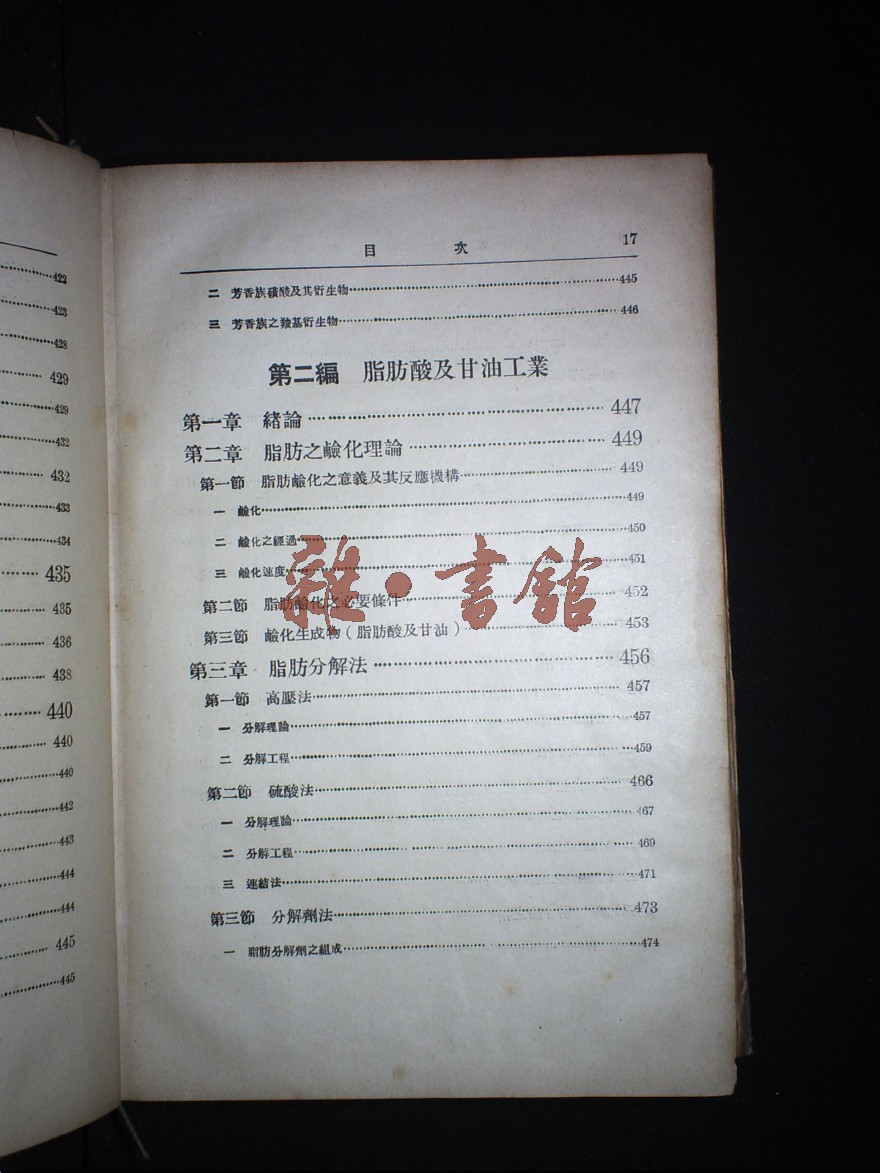 422
423
428
429
429
432
432
433
434
435
435
436
438
440
440
440
442
443
444
444
445
445
目 次 17
二 芳香族磺酸及其衍生物 445
三 芳香族之羧基衍生物 446
第二編 脂肪酸及甘油工業
第一章 緒論 447
第二章 脂肪之鹼化理論 449
第一節 脂肪鹼化之意義及其反應機構 449
一 鹼化 449
二 鹼化之經過 450
三 鹼化速度 451
雜·書館
第二節 脂肪鹼化之必要條件 452
第三節 鹼化生成物(脂肪酸及甘油) 453
第三章 脂肪分解法 456
第一節 高壓法 457
一 分解理論 457
二 分解工程 459
第二節 硫酸法 466
一 分解理論 467
二 分解工程 469
三 連結法 471
第三節 分解劑法 473
一 脂肪分解劑之組成 474